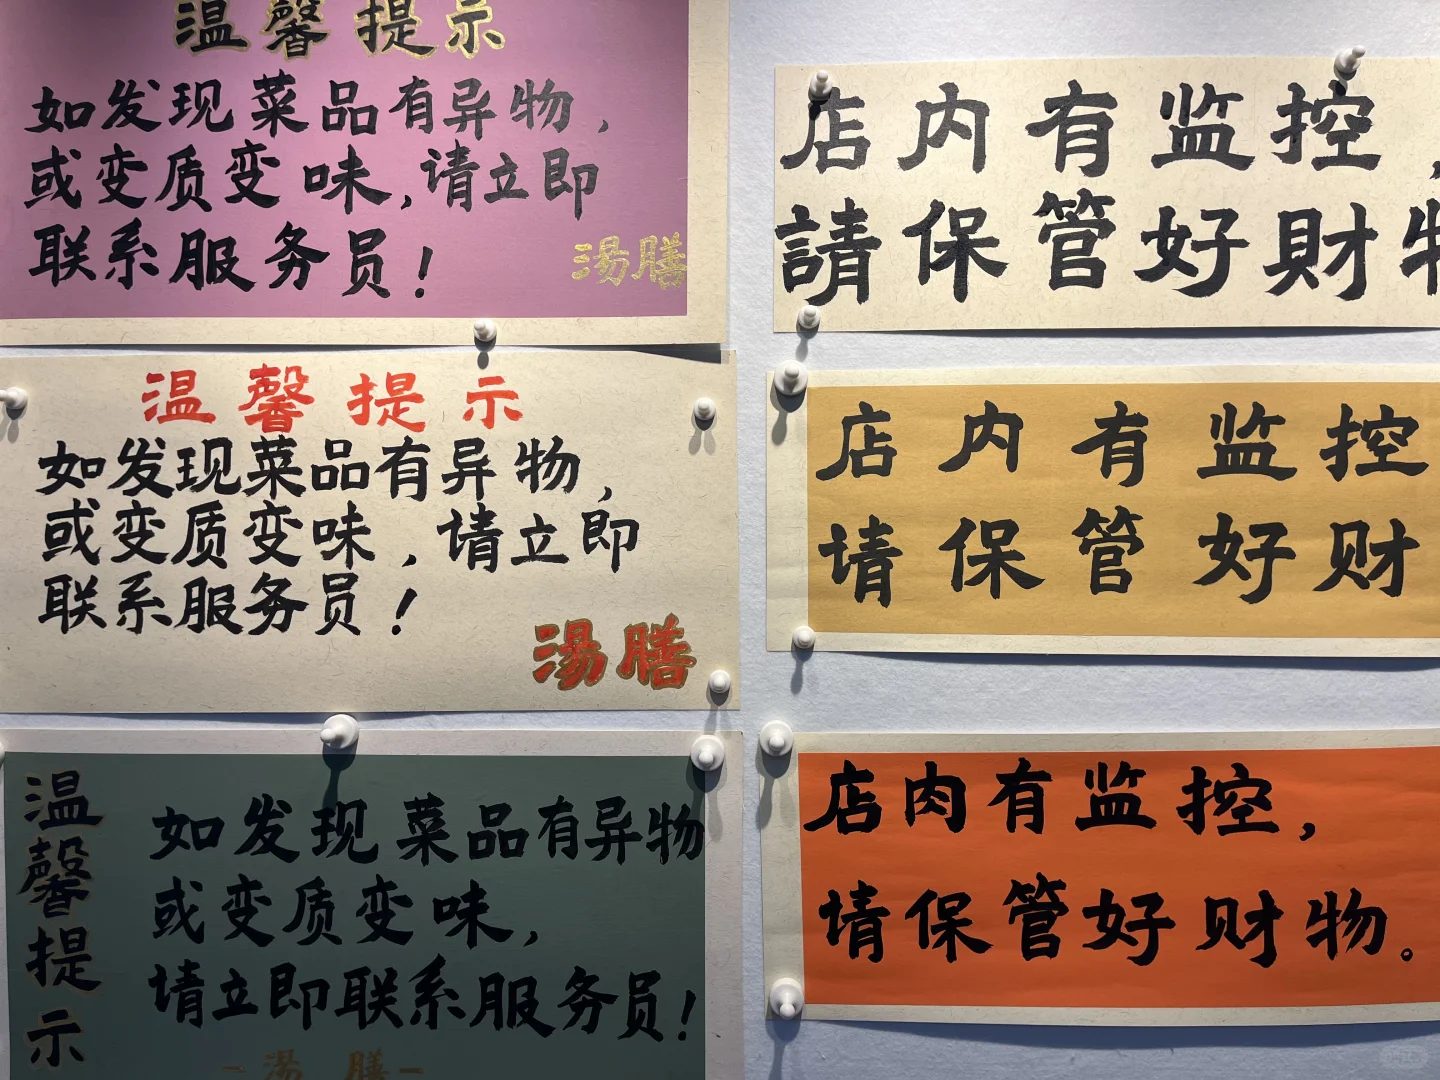 温馨提示
如发现菜品有异物，
或变质变味，请立即
联系服务员！
湯膳
温馨提示
如发现菜品有异物，
或变质变味，请立即
联系服务员！
湯膳
温馨提示
如发现菜品有异物
或变质变味，
请立即联系服务员！
-湯膳-
店内有监控，
請保管好財物
店内有监控
请保管好财
店肉有监控，
请保管好财物。